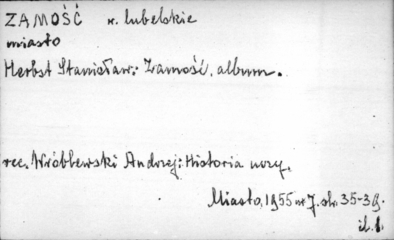 ZAMOŚĆ w. lubelskie
miasto
Herbst Stanisław: Zamość, album.
rec. Wróblewski Andrzej: Historia uczy.
Miasto, 1955 nr 7. str. 35-39.
il. 1.